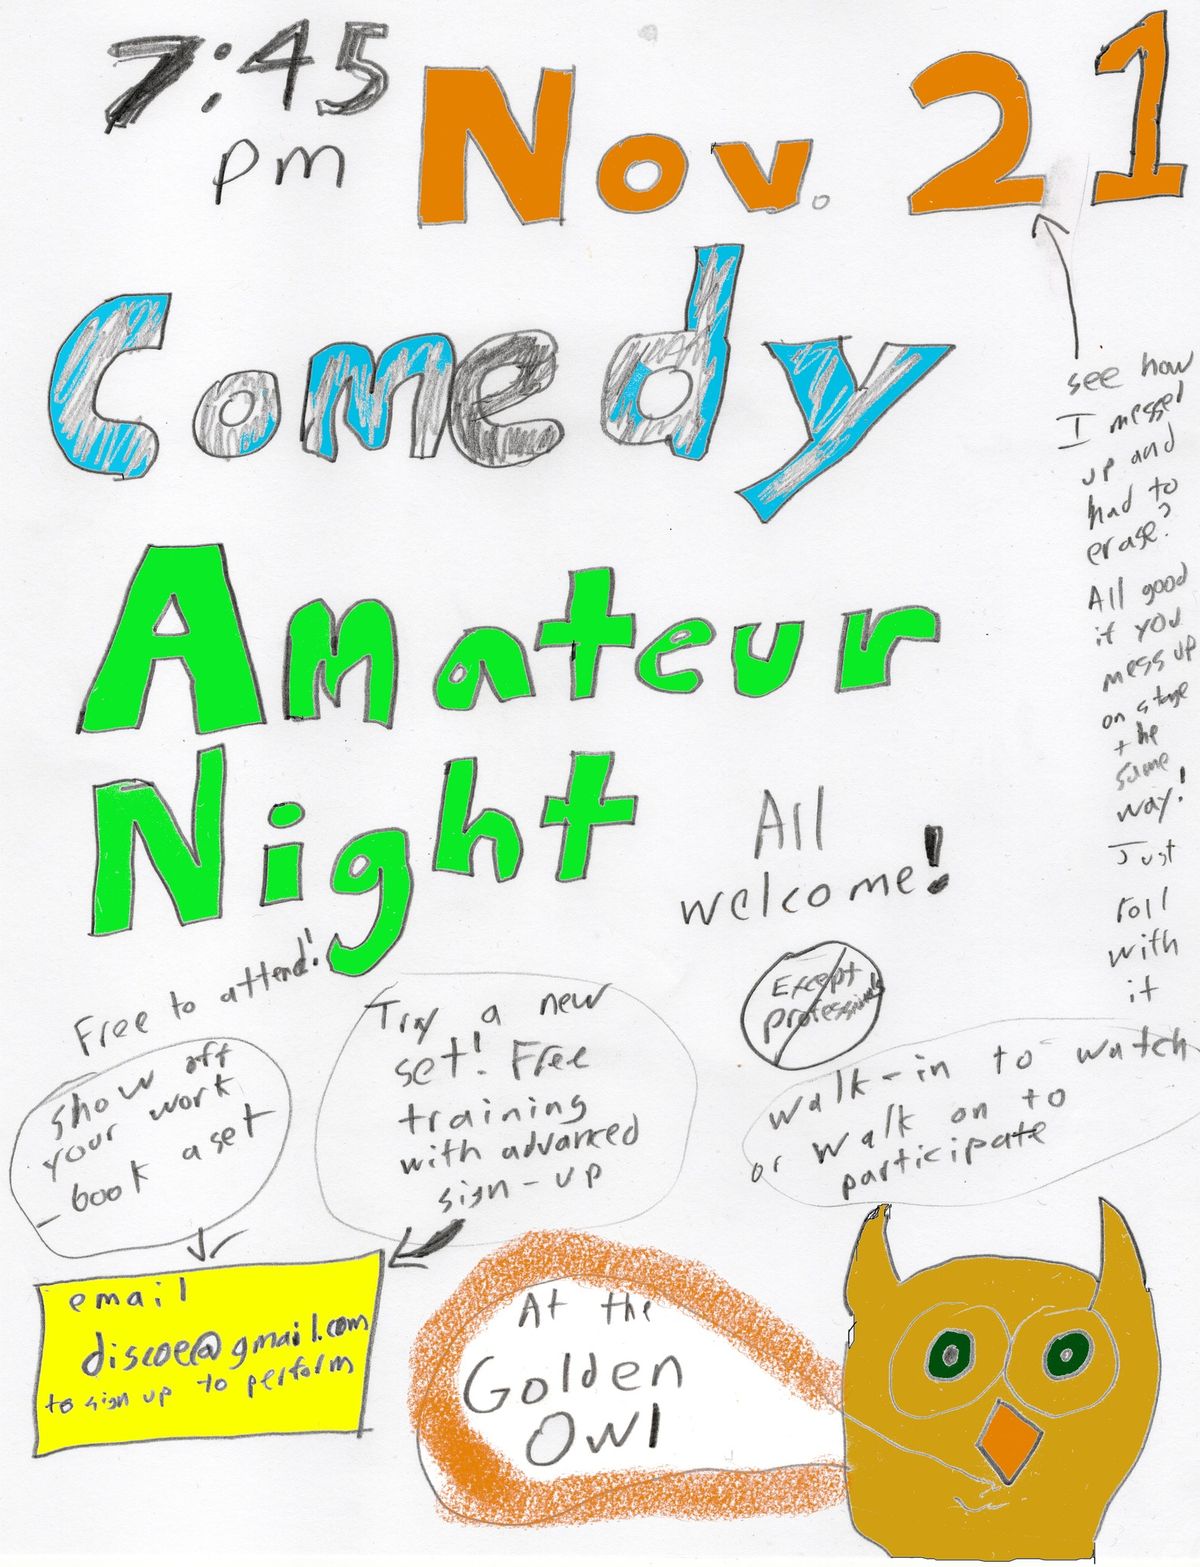 7:45
pm
Nov. 21
Comedy
Amateur
Night
see how
I messed
up and
had to
erase?
All good
if you
mess up
on stage
the
same
way!
Just
roll
with
it
All
welcome!
Except
professionals
Free to attend!
show off
your work
book a set
Try a new
set! Free
training
with advanced
sign-up
walk-in to watch
or walk on to
participate
email
discoe@gmail.com
to sign up to perform
At the
Golden
Owl